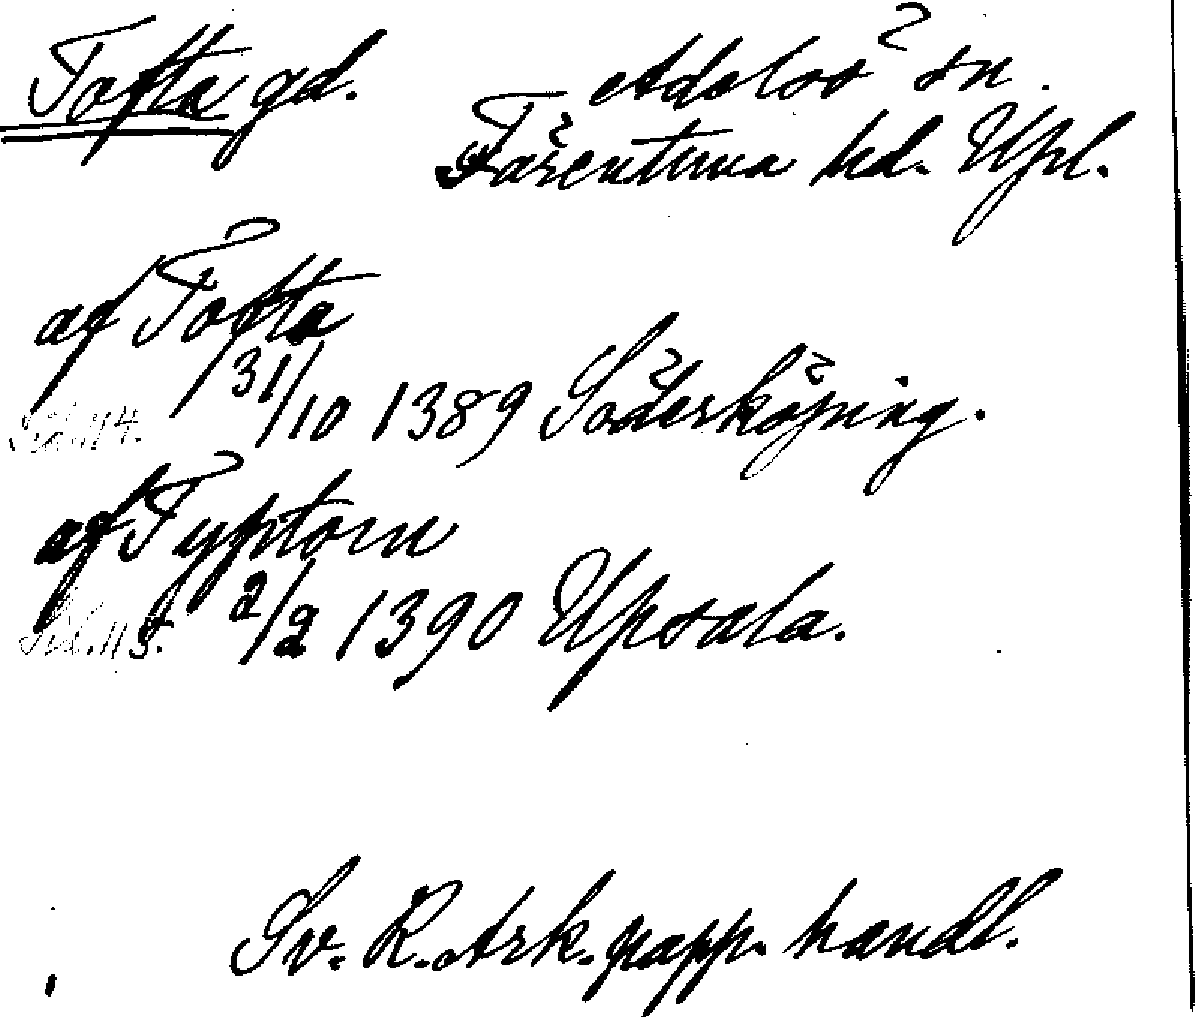 Tofta gd. Adelsö sn.
Färentuna hd. Upl.
af Tofta
Sid. 114. 31/10 1389 Söderköping.
af Typtom
Sid. 115. 2/2 1390 Upsala.
Sv. R. Ark. papp. handl.